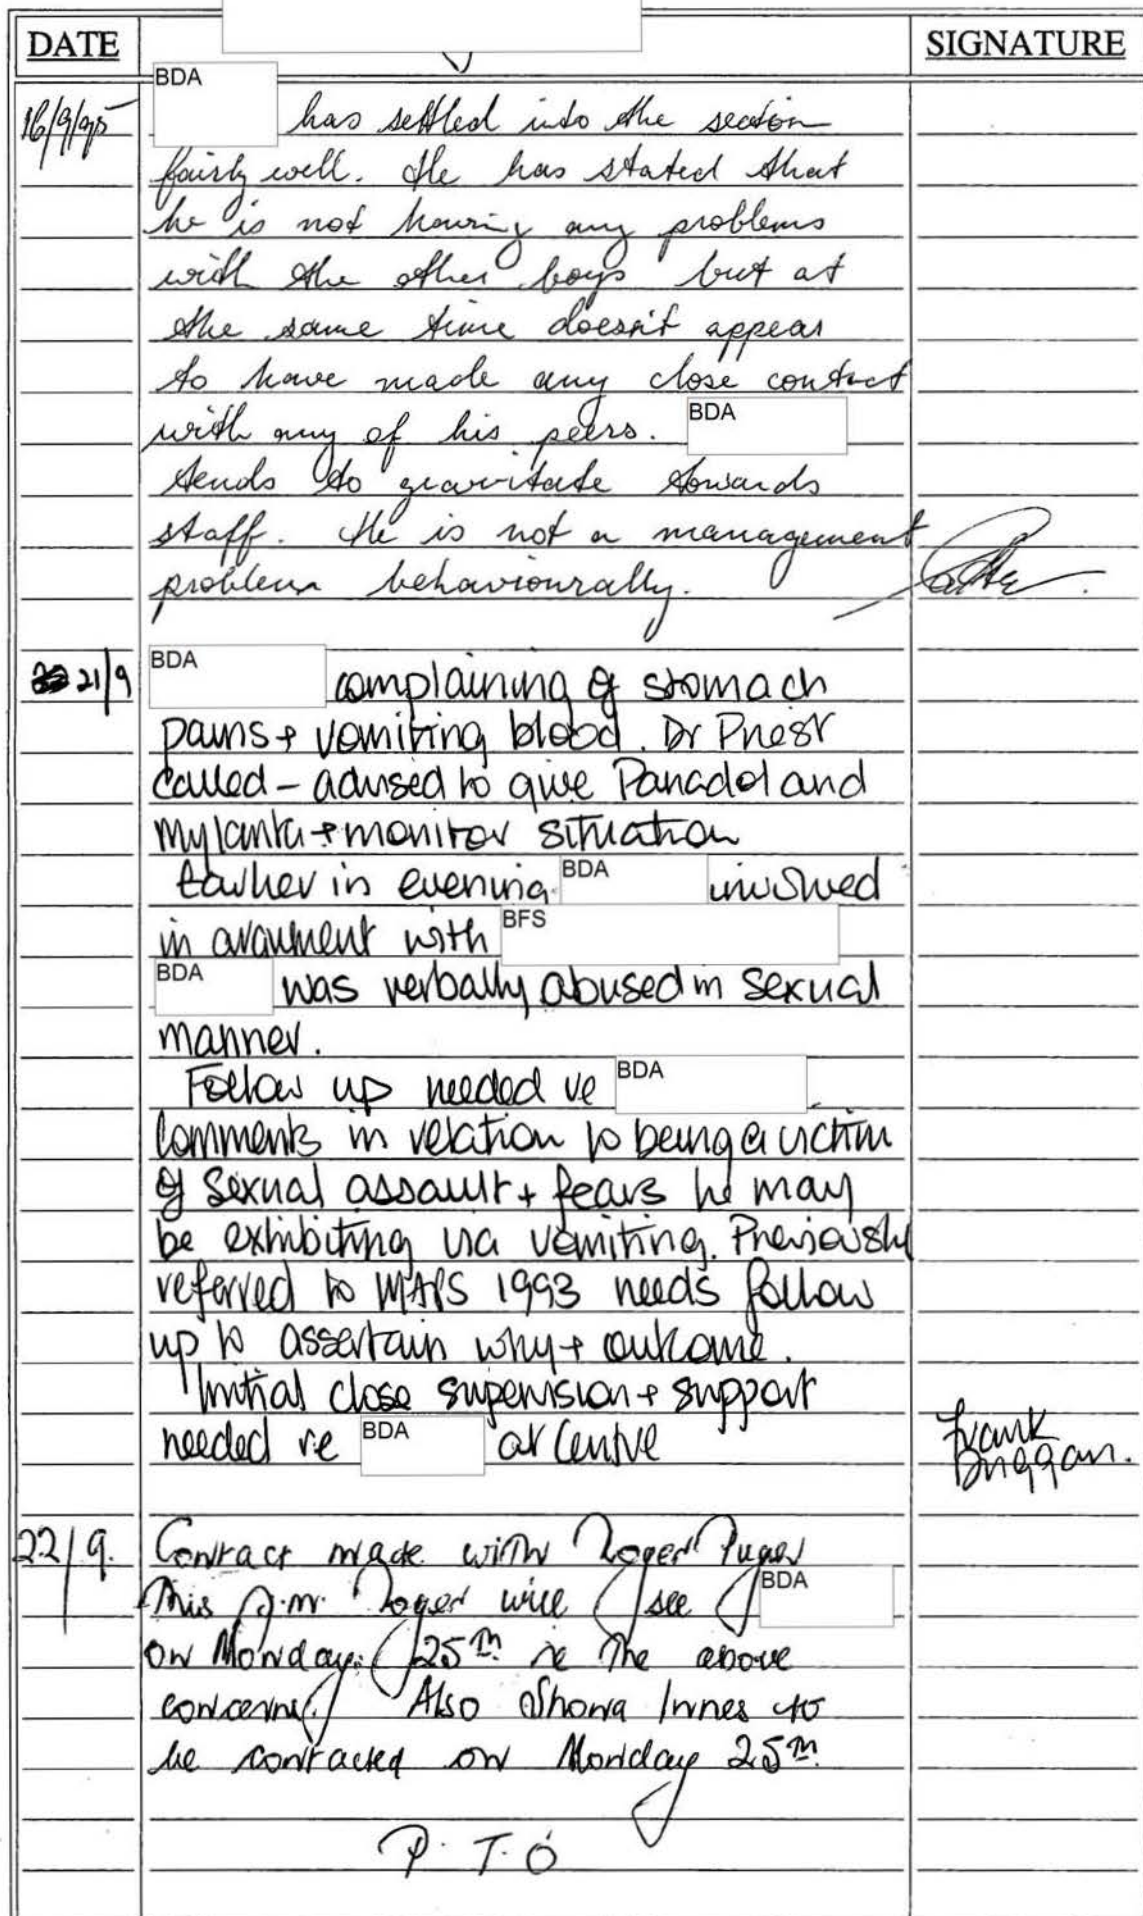 DATE
SIGNATURE
16/9/95
BDA
has settled into the section
fairly well. He has stated that
he is not having any problems
with the other boys but at
the same time doesn't appear
to have made any close contact
with any of his peers. BDA
tends to gravitate towards
staff. He is not a management
problem behaviourally.
21/9
BDA
complaining of stomach
pains + vomiting blood. Dr Priest
called - advised to give Panadol and
Mylanta + monitor situation
Earlier in evening BDA involved
in argument with BFS
BDA was verbally abused in sexual
manner.
Follow up needed re BDA
comments in relation to being a victim
of sexual assault + fears he may
be exhibiting via vomiting. Previously
referred to MAPS 1993 needs follow
up to assertain why + outcome.
Initial close supervision + support
needed re BDA at Centre
Frank
Duggan.
22/9.
Contact made with Roger
This p.m. Roger will see BDA
on Monday 25th re the above
concerns. Also Shona Innes to
be contacted on Monday 25th
P.T.O